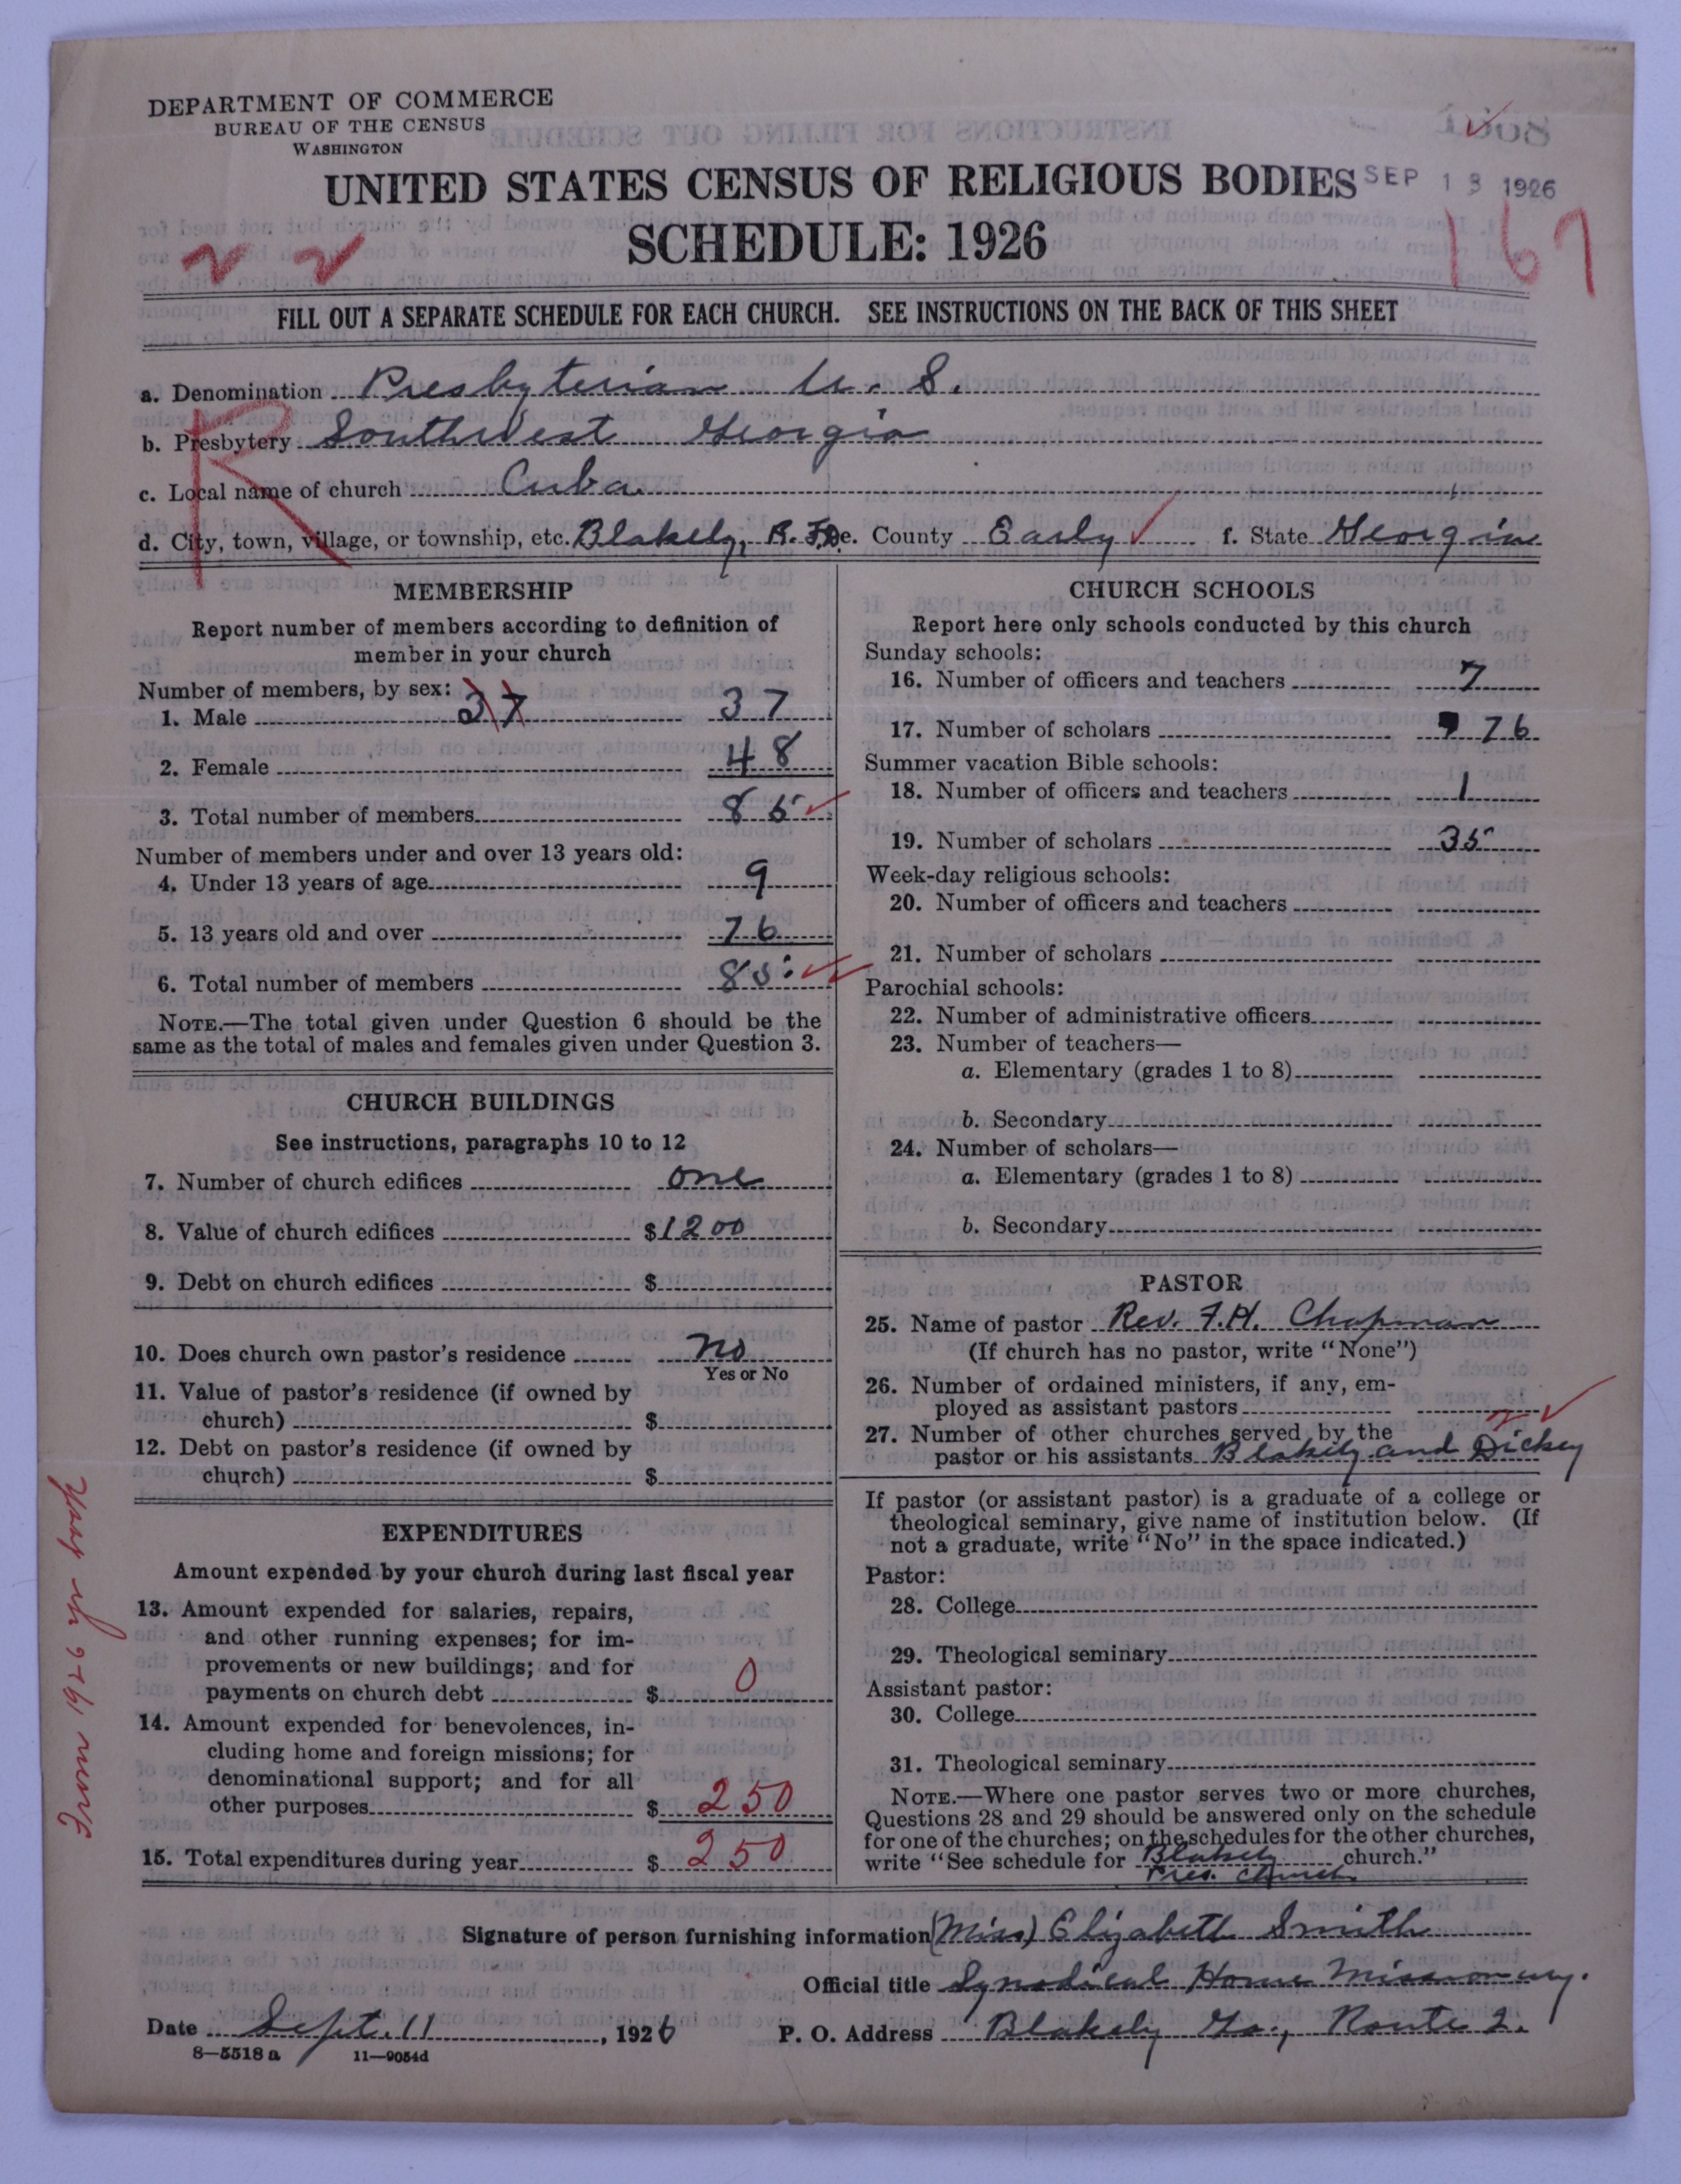 DEPARTMENT OF COMMERCE
BUREAU OF THE CENSUS
WASHINGTON
UNITED STATES CENSUS OF RELIGIOUS BODIES
SEP 13 1926
SCHEDULE: 1926
167
FILL OUT A SEPARATE SCHEDULE FOR EACH CHURCH. SEE INSTRUCTIONS ON THE BACK OF THIS SHEET
a. Denomination Presbyterian U. S.
b. Presbytery Southwest Georgia
c. Local name of church Cuba
R
d. City, town, village, or township, etc. Blakely, R.F.D. e. County Early f. State Georgia
MEMBERSHIP
Report number of members according to definition of
member in your church
Number of members, by sex:
1. Male 37 37
2. Female 48
3. Total number of members 85
Number of members under and over 13 years old:
4. Under 13 years of age 9
5. 13 years old and over 76
6. Total number of members 85
NOTE.—The total given under Question 6 should be the
same as the total of males and females given under Question 3.
CHURCH BUILDINGS
See instructions, paragraphs 10 to 12
7. Number of church edifices one
8. Value of church edifices $1200
9. Debt on church edifices $
10. Does church own pastor's residence no
Yes or No
11. Value of pastor's residence (if owned by
church) $
12. Debt on pastor's residence (if owned by
church) $
EXPENDITURES
Amount expended by your church during last fiscal year
13. Amount expended for salaries, repairs,
and other running expenses; for im-
provements or new buildings; and for
payments on church debt $ 0
14. Amount expended for benevolences, in-
cluding home and foreign missions; for
denominational support; and for all
other purposes $ 250
15. Total expenditures during year $ 250
CHURCH SCHOOLS
Report here only schools conducted by this church
Sunday schools:
16. Number of officers and teachers 7
17. Number of scholars 76
Summer vacation Bible schools:
18. Number of officers and teachers 1
19. Number of scholars 35
Week-day religious schools:
20. Number of officers and teachers
21. Number of scholars
Parochial schools:
22. Number of administrative officers
23. Number of teachers—
a. Elementary (grades 1 to 8)
b. Secondary
24. Number of scholars—
a. Elementary (grades 1 to 8)
b. Secondary
PASTOR
25. Name of pastor Rev. F.H. Chapman
(If church has no pastor, write "None")
26. Number of ordained ministers, if any, em-
ployed as assistant pastors
27. Number of other churches served by the
pastor or his assistants Blakely and Dickey
If pastor (or assistant pastor) is a graduate of a college or
theological seminary, give name of institution below. (If
not a graduate, write "No" in the space indicated.)
Pastor:
28. College
29. Theological seminary
Assistant pastor:
30. College
31. Theological seminary
NOTE.—Where one pastor serves two or more churches,
Questions 28 and 29 should be answered only on the schedule
for one of the churches; on the schedules for the other churches,
write "See schedule for Blakely church."
Pres. Church
Signature of person furnishing information (Miss) Elizabeth Smith
Official title Synodical Home Missionary.
Date Sept. 11, 1926 P. O. Address Blakely Ga., Route 2.
8—5518 a 11—9054d